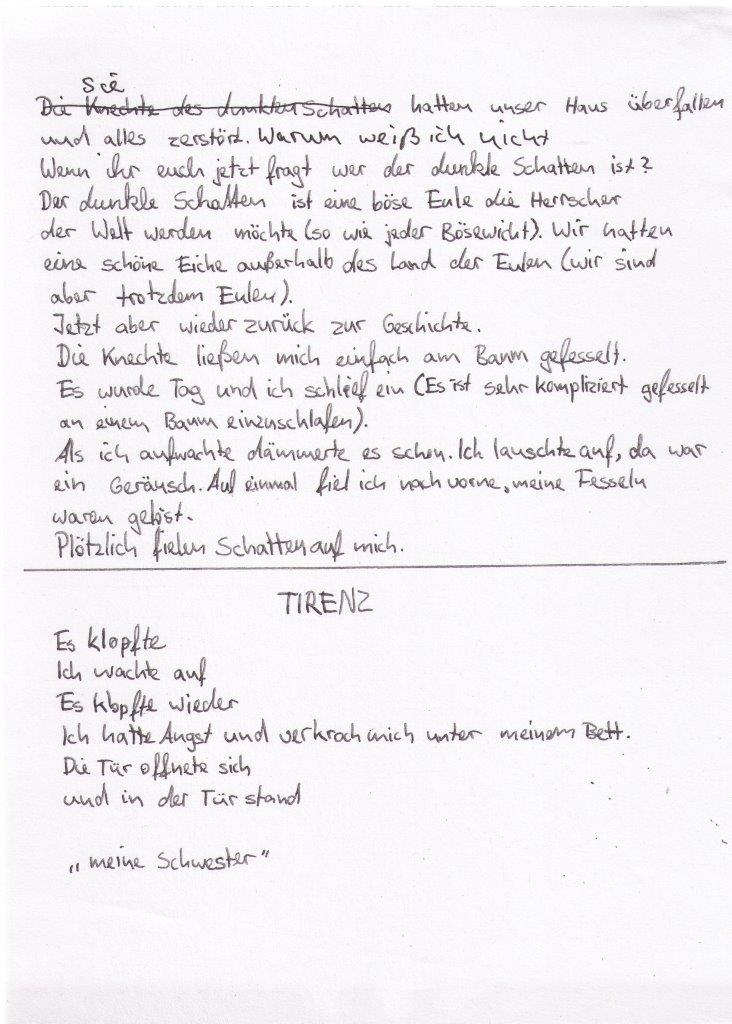 Sie
Die Knechte des dunklen Schattens hatten unser Haus überfallen
und alles zerstört. Warum weiß ich nicht
Wenn ihr euch jetzt fragt wer der dunkle Schatten ist?
Der dunkle Schatten ist eine böse Eule die Herrscher
der Welt werden möchte (so wie jeder Bösewicht). Wir hatten
eine schöne Eiche außerhalb des Land der Eulen (wir sind
aber trotzdem Eulen).
Jetzt aber wieder zurück zur Geschichte.
Die Knechte ließen mich einfach am Baum gefesselt.
Es wurde Tag und ich schlief ein (Es ist sehr kompliziert gefesselt
an einem Baum einzuschlafen).
Als ich aufwachte dämmerte es schon. Ich lauschte auf, da war
ein Geräusch. Auf einmal fiel ich nach vorne, meine Fesseln
waren gelöst.
Plötzlich fielen Schatten auf mich.
TIRENZ
Es klopfte
Ich wachte auf
Es klopfte wieder
Ich hatte Angst und verkroch mich unter meinem Bett.
Die Tür offnete sich
und in der Tür stand
„meine Schwester"